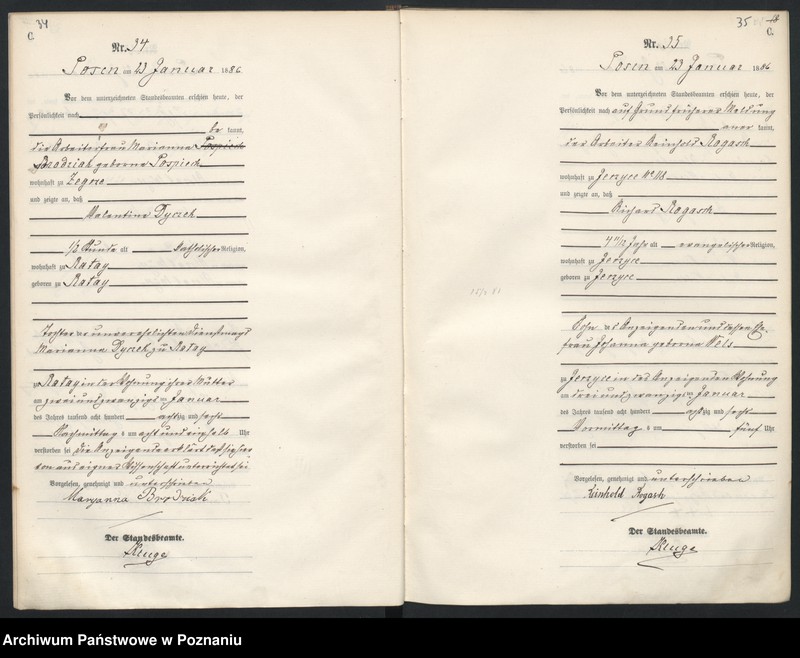 34
C.
Nr. 34
Posen am 23 Januar 1886
Vor dem unterzeichneten Standesbeamten erschien heute, der
Persönlichkeit nach
be kannt,
die Arbeiterfrau Marianna Pospiech
Brodziak geborne Pospiech
wohnhaft zu Zegrze
und zeigte an, daß
Valentina Dyczek
1/2 Stunde alt katholischer Religion,
wohnhaft zu Rataj
geboren zu Rataj
Tochter der unverehelichten Dienstmagd
Marianna Dyczek zu Rataj
zu Rataj in der Wohnung ihrer Mutter
am zwei und zwanzigsten Januar
des Jahres tausend acht hundert achtzig und sechs
Nachmittag s um acht und einhalb Uhr
verstorben sei die Anzeigende erklärt daß sie
von aus eigner Wissenschaft unterrichtet sei
Vorgelesen, genehmigt und unterschrieben
Maryanna Brodziak
Der Standesbeamte.
Kluge
35
18
C.
Nr. 35
Posen am 23 Januar 1886
Vor dem unterzeichneten Standesbeamten erschien heute, der
Persönlichkeit nach auf Grund früherer Meldung
aner kannt,
der Arbeiter Reinhold Rogasch
wohnhaft zu Jerzyce No 118
und zeigte an, daß
Richard Rogasch
4 Jahr alt evangelischer Religion,
wohnhaft zu Jerzyce
geboren zu Jerzyce
Sohn des Anzeigenden und dessen Ehe-
frau Johanna geborne Wels
zu Jerzyce in des Anzeigenden Wohnung
am drei und zwanzigsten Januar
des Jahres tausend acht hundert achtzig und sechs
Vormittag s um fünf Uhr
verstorben sei
Vorgelesen, genehmigt und unterschrieben
Reinhold Rogasch
Der Standesbeamte.
Kluge
Archiwum Państwowe w Poznaniu